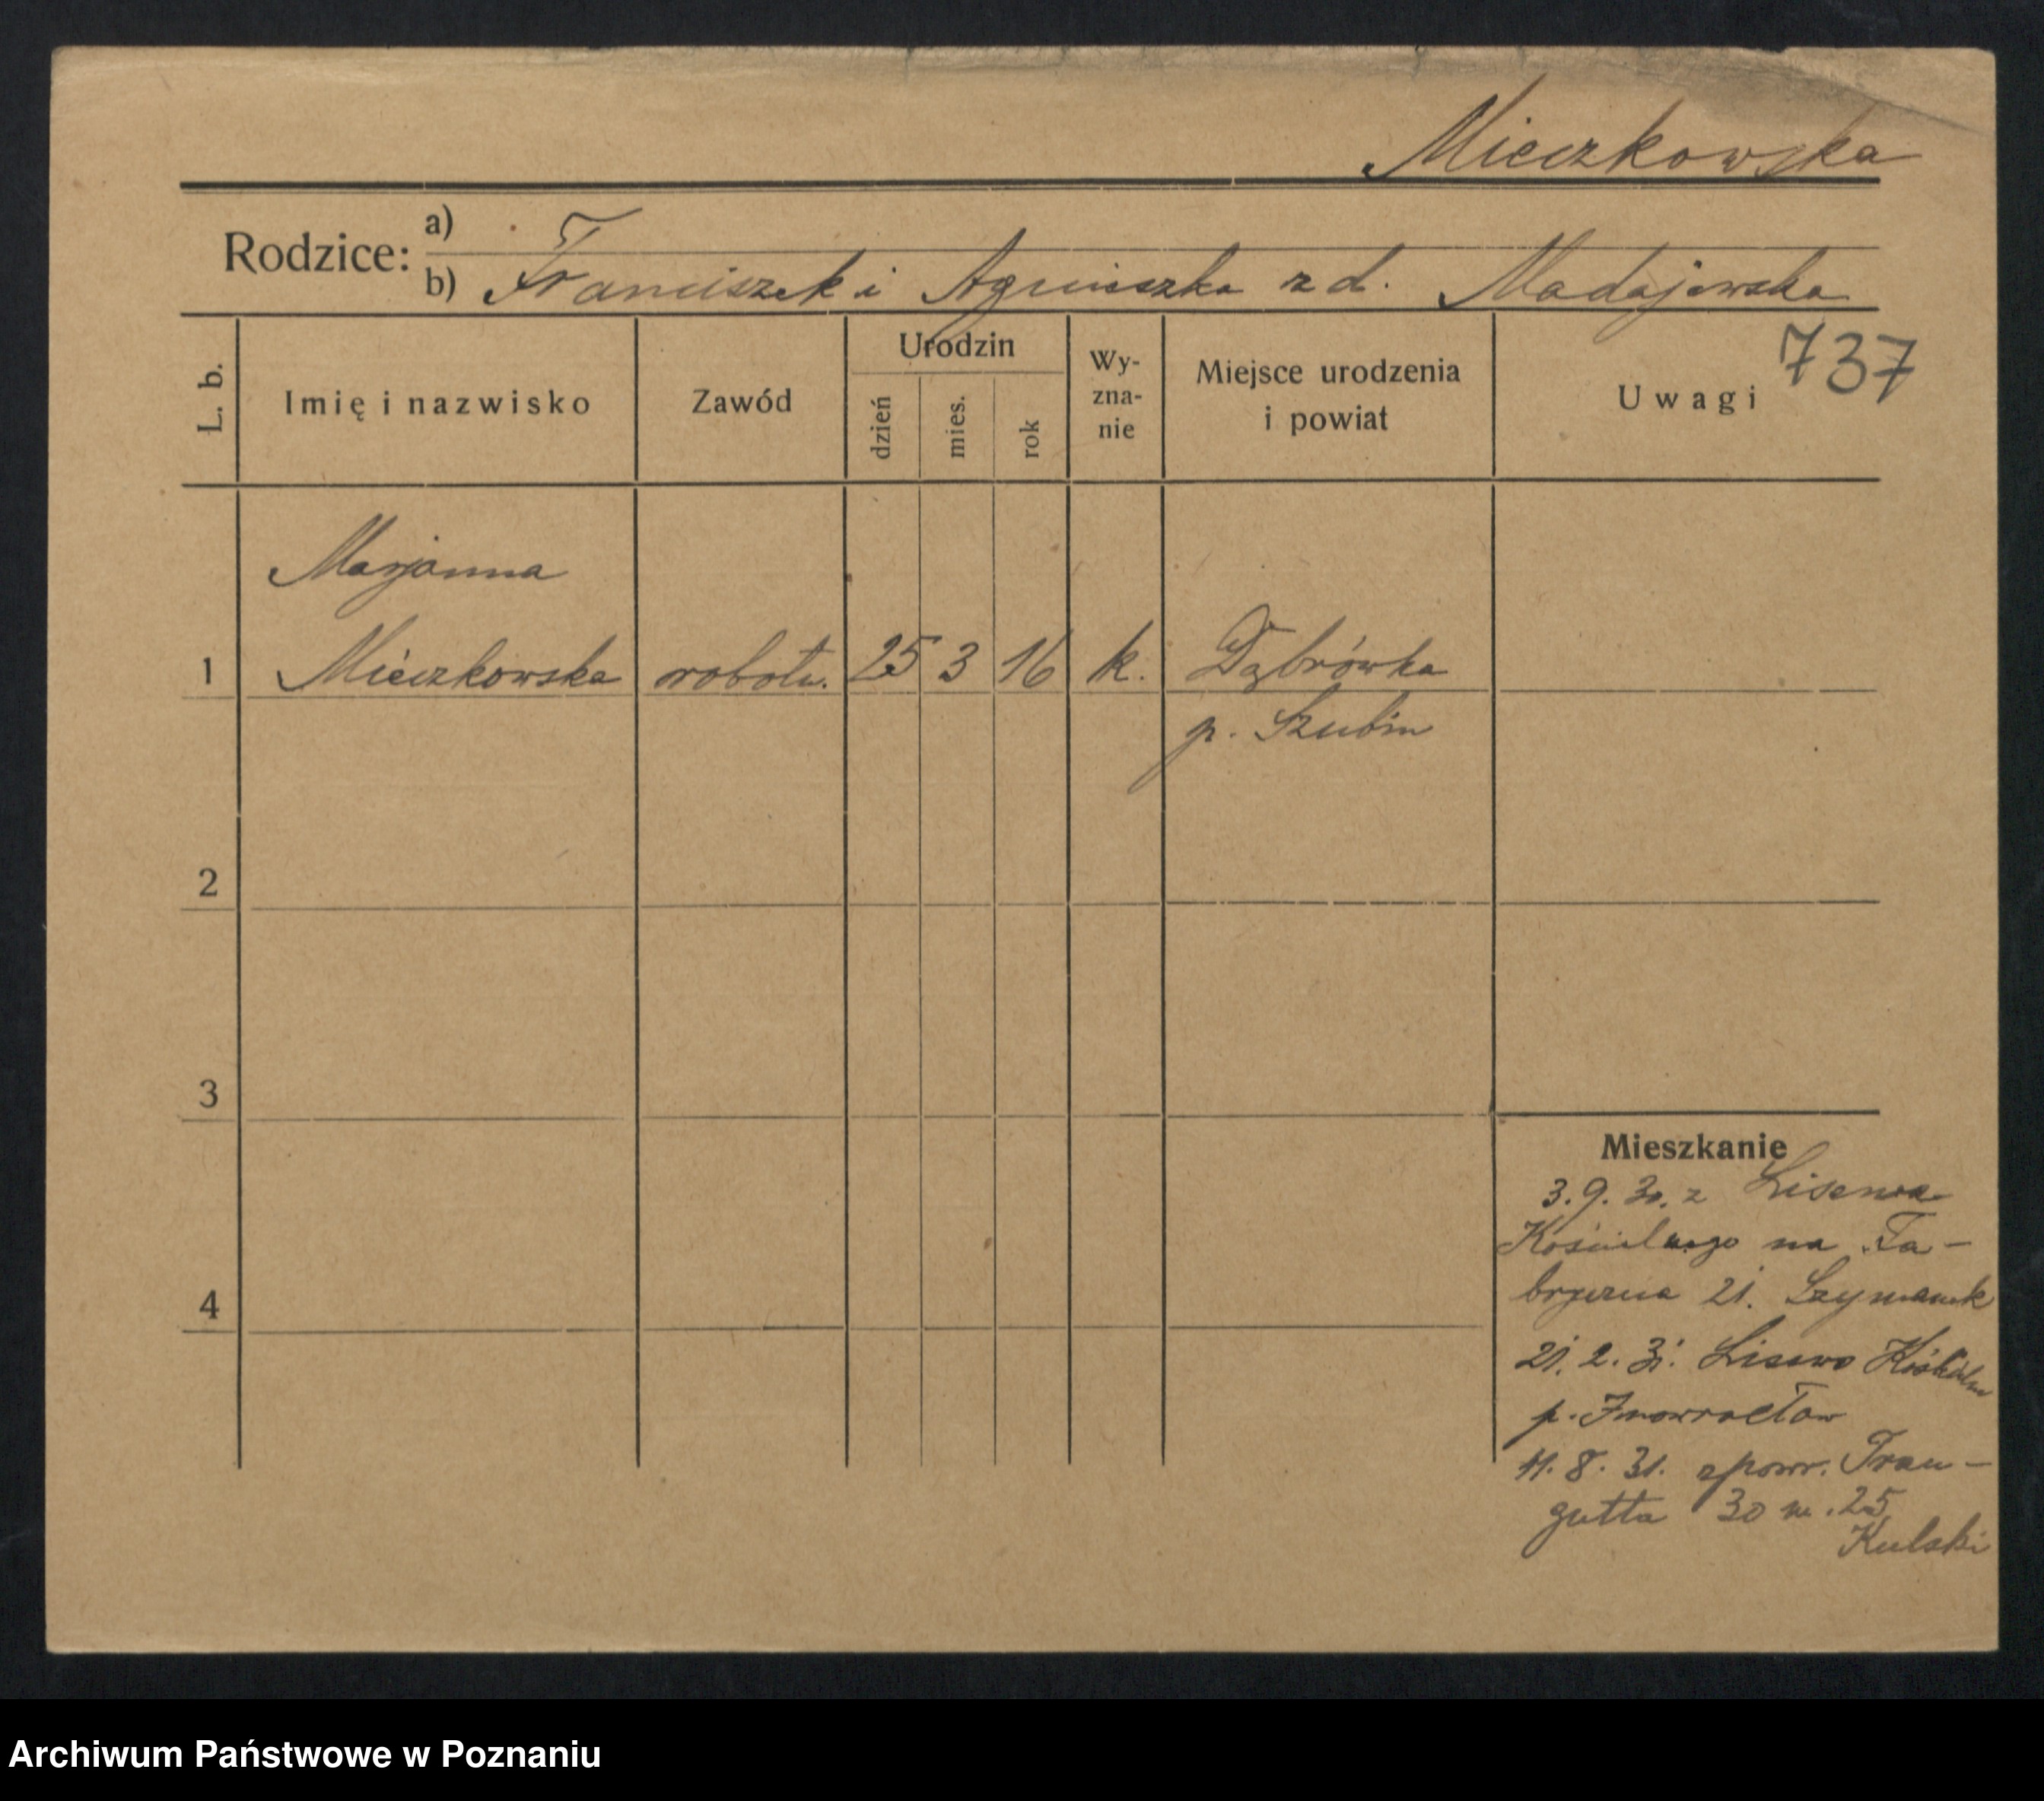 Mieczkowska
Rodzice:
a)
b) Franciszek i Agnieszka z d. Madajewska
737
L. b.
Imię i nazwisko
Zawód
Urodzin
dzień
mies.
rok
Wy-
zna-
nie
Miejsce urodzenia
i powiat
Uwagi
Marjanna
1 Mieczkowska robotn. 25 3 16 k. Dąbrówka
p. Szubin
2
3
4
Mieszkanie
3.9.30. z Lisewa
Kościelnego na Fa-
bryczna 21. Szymanek
21.2.31. Lisewo Kościelne
p. Inowrocław
11.8.31. zpowr. Trau-
gutta 30 m. 25
Kulski
Archiwum Państwowe w Poznaniu